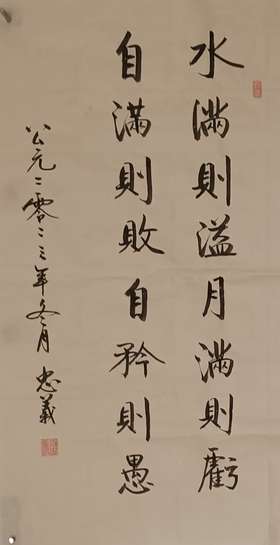 水满则溢月满则虧
自满则敗自矜则愚
公元二零二三年冬月 忠義